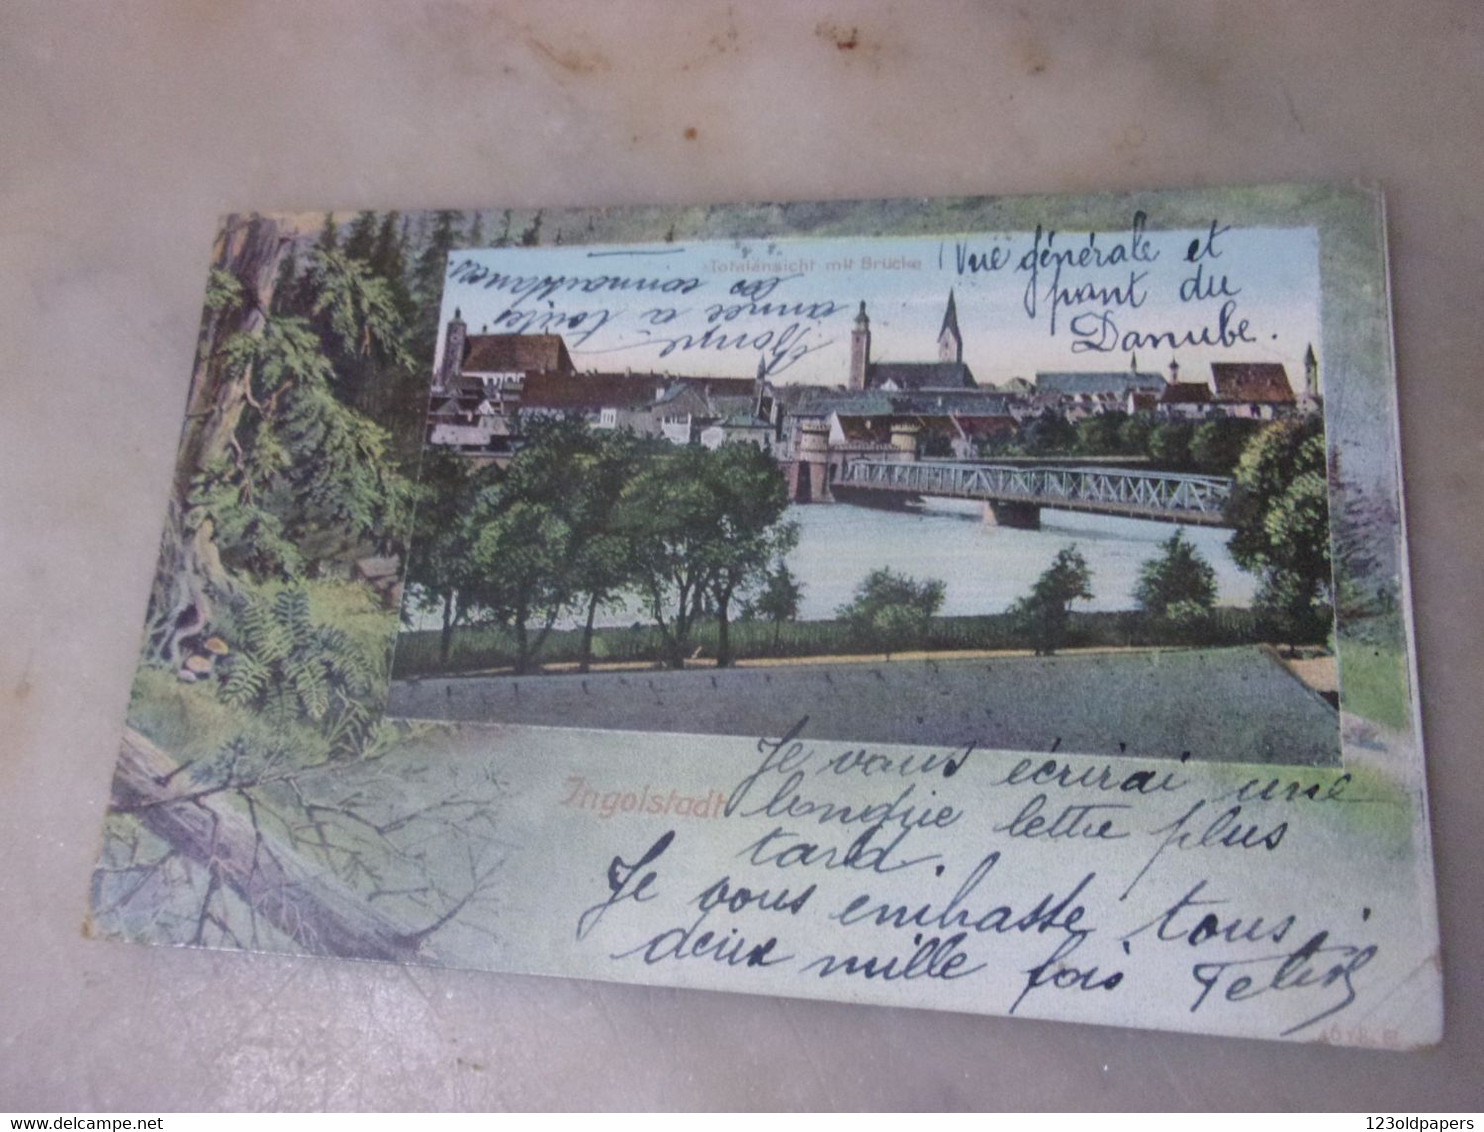 Totalansicht mit Brücke
Vue générale et
pont du
Danube.
Bonne
année a toutes
les connaissances
Ingolstadt
Je vous écrirai une
longue lettre plus
tard.
Je vous embrasse tous
deux mille fois
delcampe.net
123oldpapers